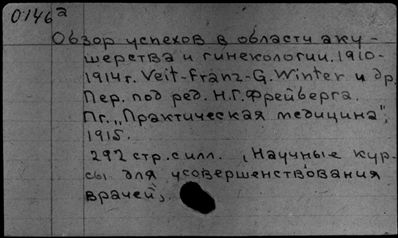 0-146а
Обзор успехов в области аку-
шерства и гинекологии. 1910-
1914 г. Veit-Franz-G. Winter и др.
Пер. под ред. Н.Г. Фрейберга.
Пг. „Практическая медицина",
1915.
292 стр. с илл. „Научные кур-
сы для усовершенствования
врачей",